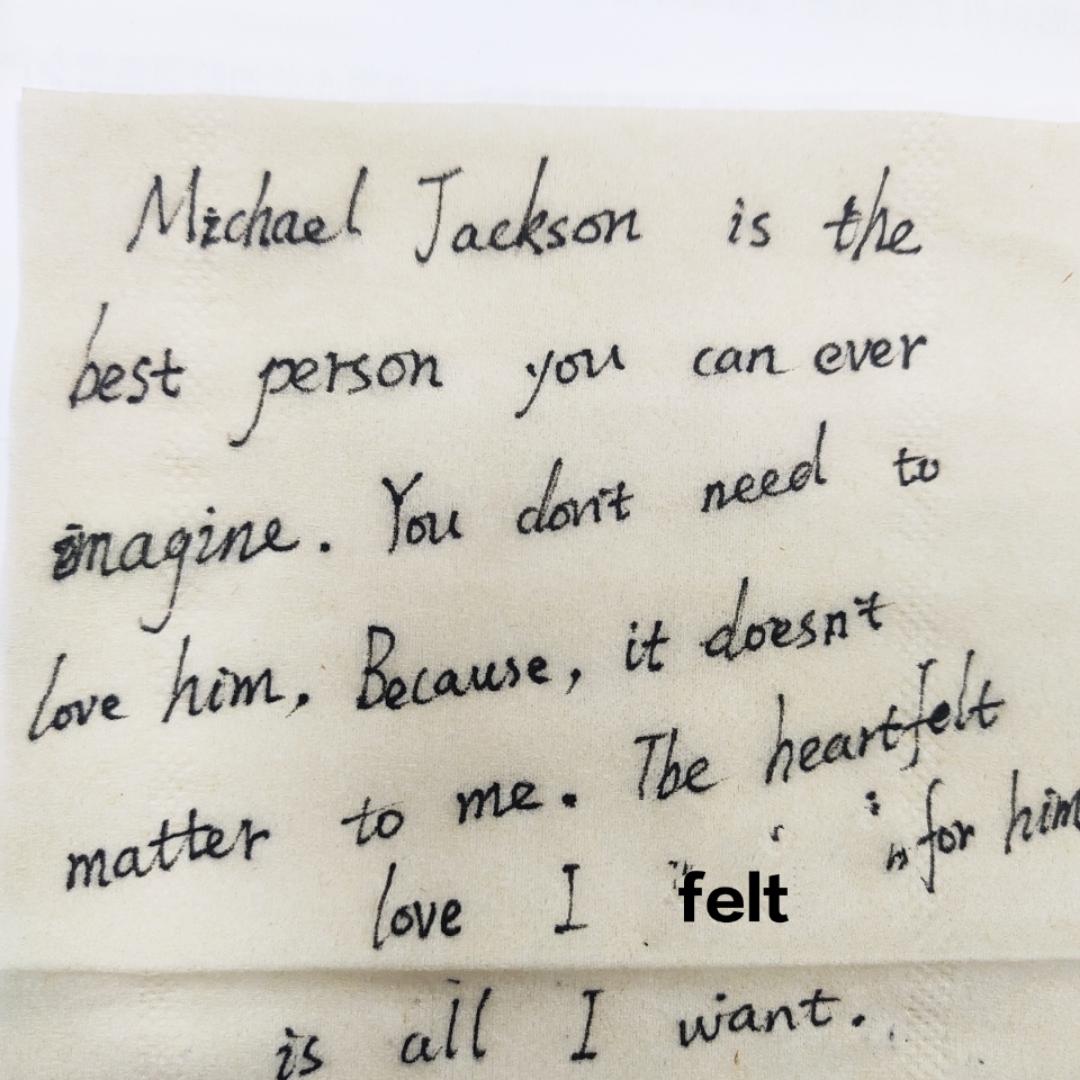 Michael Jackson is the
best person you can ever
imagine. You don't need to
love him. Because, it doesn't
matter to me. The heartfelt
love I felt for him
is all I want.